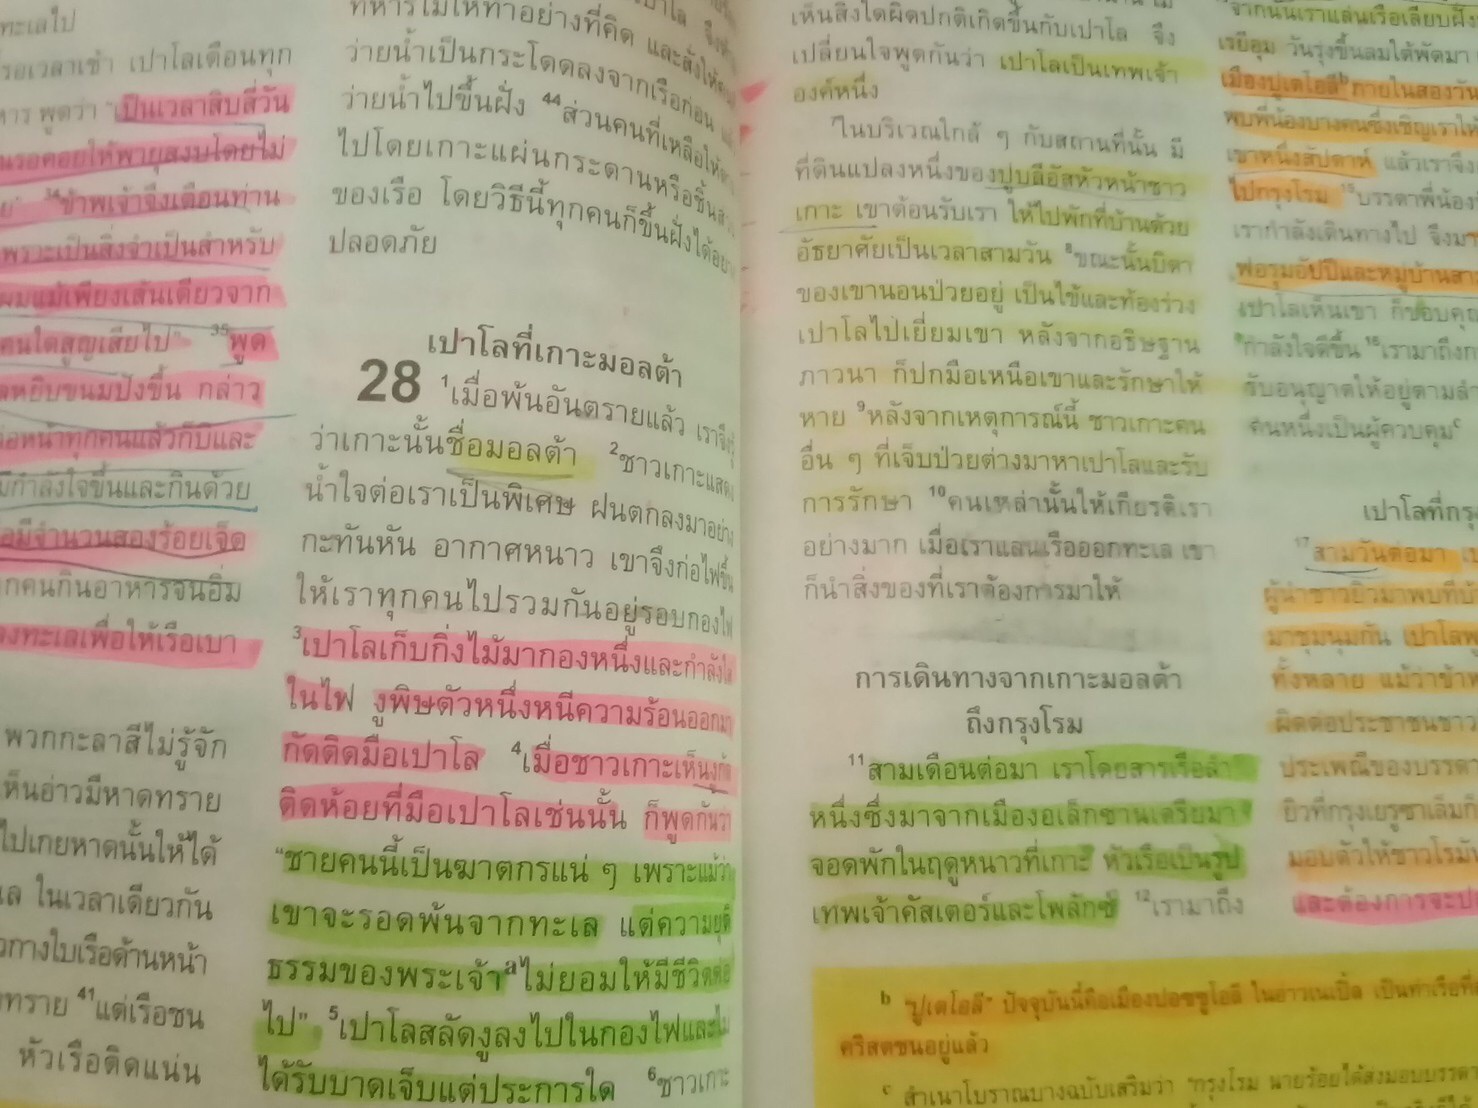 ทะเลไป
รอเวลาเช้า เปาโลเตือนทุก
หาร พูดว่า "เป็นเวลาสิบสี่วัน
นรอคอยให้พายุสงบโดยไม่
34ข้าพเจ้าจึงเตือนท่าน
เพราะเป็นสิ่งจำเป็นสำหรับ
ผมแม้เพียงเส้นเดียวจาก
คนใดสูญเสียไป" 35พูด
หยิบขนมปังขึ้น กล่าว
ต่อหน้าทุกคนแล้วก็บิและ
มีกำลังใจขึ้นและกินด้วย
มีจำนวนสองร้อยเจ็ด
กคนกินอาหารจนอิ่ม
ลงทะเลเพื่อให้เรือเบา
พวกกะลาสีไม่รู้จัก
เห็นอ่าวมีหาดทราย
ไปเกยหาดนั้นให้ได้
ล ในเวลาเดียวกัน
วทางใบเรือด้านหน้า
ทราย 41แต่เรือชน
หัวเรือติดแน่น
ทหารไม่ให้ทำอย่างที่คิด และสั่งให้
ว่ายน้ำเป็นกระโดดลงจากเรือก่อน
ว่ายน้ำไปขึ้นฝั่ง 44ส่วนคนที่เหลือให้
ไปโดยเกาะแผ่นกระดานหรือชิ้น
ของเรือ โดยวิธีนี้ทุกคนก็ขึ้นฝั่งได้อย่าง
ปลอดภัย
เปาโลที่เกาะมอลต้า
28 1เมื่อพ้นอันตรายแล้ว เราจึงรู้
ว่าเกาะนั้นชื่อมอลต้า 2ชาวเกาะแสดง
น้ำใจต่อเราเป็นพิเศษ ฝนตกลงมาอย่าง
กะทันหัน อากาศหนาว เขาจึงก่อไฟขึ้น
ให้เราทุกคนไปรวมกันอยู่รอบกองไฟ
3เปาโลเก็บกิ่งไม้มากองหนึ่งและกำลังใส่
ในไฟ งูพิษตัวหนึ่งหนีความร้อนออกมา
กัดติดมือเปาโล 4เมื่อชาวเกาะเห็นงูกัด
ติดห้อยที่มือเปาโลเช่นนั้น ก็พูดกันว่า
"ชายคนนี้เป็นฆาตกรแน่ ๆ เพราะแม้ว่า
เขาจะรอดพ้นจากทะเล แต่ความยุติ
ธรรมของพระเจ้าaไม่ยอมให้มีชีวิตต่อ
ไป" 5เปาโลสลัดงูลงไปในกองไฟและไม่
ได้รับบาดเจ็บแต่ประการใด 6ชาวเกาะ
เห็นสิ่งใดผิดปกติเกิดขึ้นกับเปาโล จึง
เปลี่ยนใจพูดกันว่า เปาโลเป็นเทพเจ้า
องค์หนึ่ง
7ในบริเวณใกล้ ๆ กับสถานที่นั้น มี
ที่ดินแปลงหนึ่งของปูบลีอัสหัวหน้าชาว
เกาะ เขาต้อนรับเรา ให้ไปพักที่บ้านด้วย
อัธยาศัยเป็นเวลาสามวัน 8ขณะนั้นบิดา
ของเขานอนป่วยอยู่ เป็นไข้และท้องร่วง
เปาโลไปเยี่ยมเขา หลังจากอธิษฐาน
ภาวนา ก็ปกมือเหนือเขาและรักษาให้
หาย 9หลังจากเหตุการณ์นี้ ชาวเกาะคน
อื่น ๆ ที่เจ็บป่วยต่างมาหาเปาโลและรับ
การรักษา 10คนเหล่านั้นให้เกียรติเรา
อย่างมาก เมื่อเราแล่นเรือออกทะเล เขา
ก็นำสิ่งของที่เราต้องการมาให้
การเดินทางจากเกาะมอลต้า
ถึงกรุงโรม
11สามเดือนต่อมา เราโดยสารเรือลำ
หนึ่งซึ่งมาจากเมืองอเล็กซานเดรียมา
จอดพักในฤดูหนาวที่เกาะ หัวเรือเป็นรูป
เทพเจ้าคัสเตอร์และโพลักซ์ 12เรามาถึง
จากนั้นเราแล่นเรือเลียบฝั่ง
เรยีอุม วันรุ่งขึ้นลมใต้พัดมา
เมืองปูเตโอลีb ภายในสองวัน
พบพี่น้องบางคนซึ่งเชิญเราให้
เขาหนึ่งสัปดาห์ แล้วเราจึง
ไปกรุงโรม 15บรรดาพี่น้อง
เรากำลังเดินทางไป จึงมา
ฟอรุมอัปปีและหมู่บ้านสาม
เปาโลเห็นเขา ก็ขอบคุณ
กำลังใจดีขึ้น 16เรามาถึงก
รับอนุญาตให้อยู่ตามลำ
คนหนึ่งเป็นผู้ควบคุมc
เปาโลที่กรุง
17สามวันต่อมา เป
ผู้นำชาวยิวมาพบที่บ้
มาชุมนุมกัน เปาโลพู
ทั้งหลาย แม้ว่าข้าพ
ผิดต่อประชาชนชาว
ประเพณีของบรรดา
ยิวที่กรุงเยรูซาเล็มก็
มอบตัวให้ชาวโรมัน
และต้องการจะปล
b "ปูเตโอลี" ปัจจุบันนี้คือเมืองปอซซูโอลี ในอ่าวเนเปิ้ล เป็นท่าเรือที่
คริสตชนอยู่แล้ว
c สำเนาโบราณบางฉบับเสริมว่า "กรุงโรม นายร้อยได้ส่งมอบบรรดา